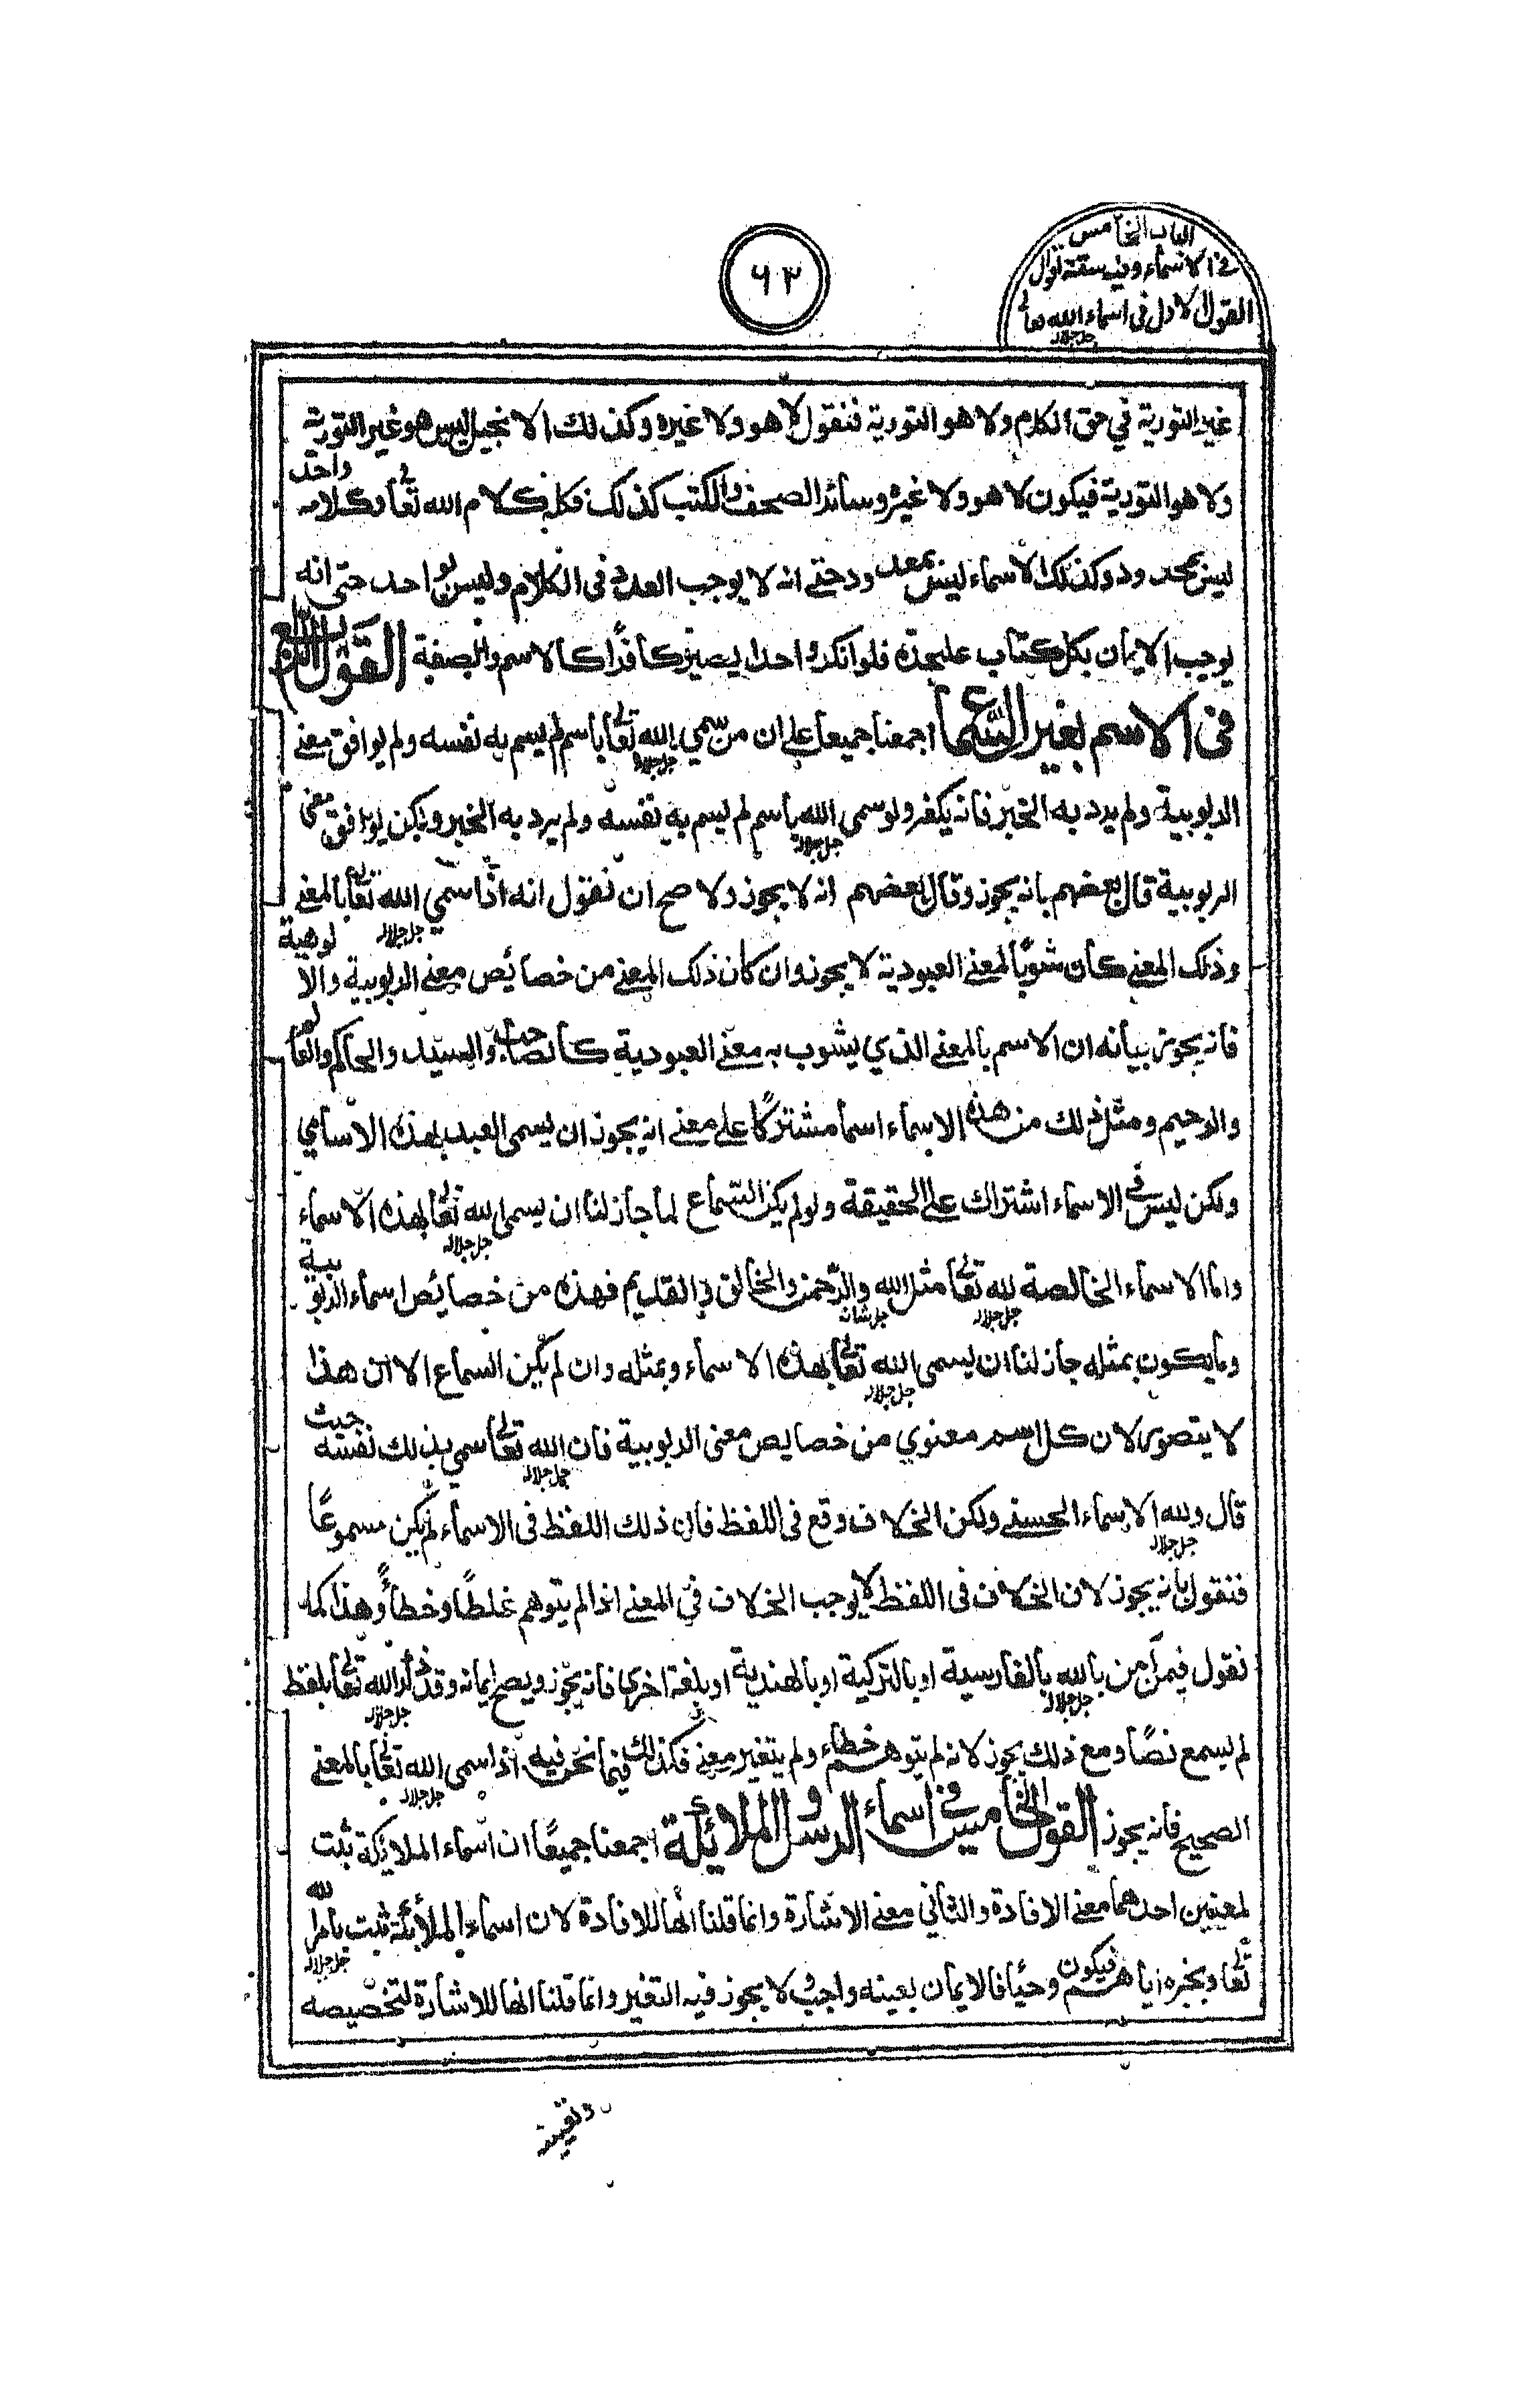 الباب الخامس
في الاسماء وفيه ستة اقوال
القول الاول في اسماء الله تعالى
جل جلاله
٦٣
غير التورية في حق الكلام ولا هو التورية فنقول لا هو ولا غيره وكذلك الانجيل ليس هو غير التورية
ولا هو التورية فيكون لا هو ولا غيره وسائر الصحف والكتب كذلك فكله كلام الله تعالى وكلامه واحد
ليس بمحدود وكذلك الاسماء ليس بمعدود حتى انه لا يوجب العدد في الكلام وليس بواحد حتى انه
يوجب الايمان بكل كتاب عليحدة فلو انكر واحدا يصير كافرًا كالاسم والصفة القول الرابع
في الاسم بغير السماع اجمعنا جميعا على ان من سمي الله تعالى جل جلاله باسم لم يسم به نفسه ولم يوافق معنى
الربوبية ولم يرد به الخبر فانه يكفر ولو سمى الله جل جلاله باسم لم يسم به نفسه ولم يرد به الخبر ولكن يوافق معنى
الربوبية قال بعضهم بانه يجوز وقال بعضهم انه لا يجوز ولا صح ان نقول انه اذا سمي الله تعالى جل جلاله بالمعنى
وذلك المعنى كان شوبًا لمعنى العبودية لا يجوز وان كان ذلك المعنى من خصائص معنى الربوبية والالوهية
فانه يجوز بيانه ان الاسم بالمعنى الذي يشوب به معنى العبودية كالصاحب والسيد والحاكم والعالم
والرحيم ومثل ذلك من هذه الاسماء اسما مشتركًا على معنى انه يجوز ان يسمى العبد بهذه الاسامي
ولكن ليس في الاسماء اشتراك على الحقيقة ولو لم يكن السماع لما جاز لنا ان يسمى الله تعالى جل جلاله بهذه الاسماء
واما الاسماء الخالصة لله تعالى جل جلاله مثل الله والرحمن جل شانه والخالق والقديم فهذه من خصائص اسماء الربوبية
وما يكون بمثله جاز لنا ان يسمى الله تعالى جل جلاله بهذه الاسماء وبمثله وان لم يكن السماع الا ان هذا
لا يتصور لان كل اسم معنوي من خصايص معنى الربوبية فان الله تعالى جل جلاله سمي بذلك نفسه حيث
قال ولله جل جلاله الاسماء الحسنى ولكن الخلاف وقع في اللفظ فان ذلك اللفظ في الاسماء لم يكن مسموعًا
فنقول بانه يجوز لان الخلاف في اللفظ لا يوجب الخلاف في المعنى اذا لم يتوهم غلطًا وخطأً وهذا كما
نقول فيمن آمن بالله جل جلاله بالفارسية او بالتركية او بالهندية او بلغة اخرى فانه يجوز ويصح ايمانه وقد ذكر الله تعالى جل جلاله بلفظ
لم يسمع نصًا ومع ذلك يجوز لانه لم يتوهم خطاء ولم يتغير معنى فكذلك فيما نحن فيه اذا سمى الله تعالى جل جلاله بالمعنى
الصحيح فانه يجوز القول الخامس في اسماء الرسل والملائكة اجمعنا جميعًا ان اسماء الملايكة ثبت
لمعنيين احدهما معنى الافادة والثاني معنى الاشارة وانما قلنا انها للافادة لان اسماء الملائكة ثبت بامر الله جل جلاله
تعالى وبخبره اياهم فيكون وحيًا فالايمان بعينه واجب ولا يجوز فيه التغير وانما قلنا انها للاشارة لتخصيصه